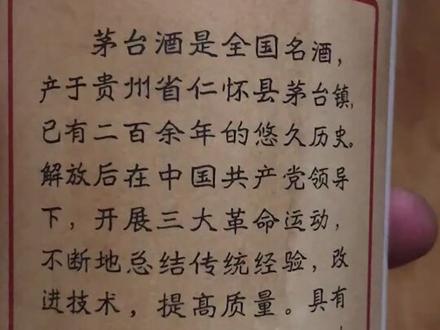 茅台酒是全国名酒，
产于贵州省仁怀县茅台镇，
已有二百余年的悠久历史。
解放后在中国共产党领导
下，开展三大革命运动，
不断地总结传统经验，改
进技术，提高质量。具有